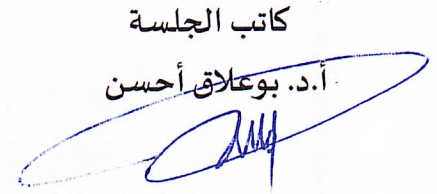 كاتب الجلسة
أ.د. بوعلاق أحسن